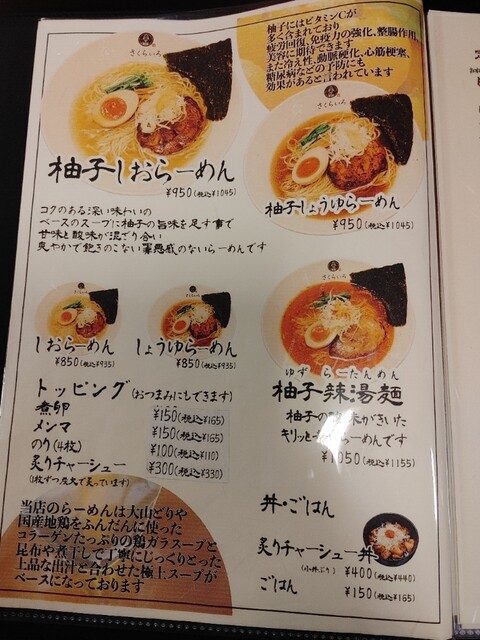 柚子にはビタミンCが
多く含まれており
疲労回復、免疫力の強化、整腸作用、
美容に期待できます
また冷え性、動脈硬化、心筋梗塞、
糖尿病などの予防にも
効果があると言われています
さくらいろ
柚子しおらーめん
¥950(税込¥1045)
さくらいろ
柚子しょうゆらーめん
¥950(税込¥1045)
コクのある深い味わいの
ベースのスープに柚子の旨味を足す事で
甘味と酸味が混ざり合い
爽やかで飽きのこない罪悪感のないらーめんです
さくらいろ
しおらーめん
¥850(税込¥935)
さくらいろ
しょうゆらーめん
¥850(税込¥935)
さくらいろ
ゆず らーたんめん
柚子辣湯麺
柚子の 味がきいた
キリッと らーめんです
¥1050(税込¥1155)
トッピング(おつまみにもできます)
煮卵 ¥150(税込¥165)
メンマ ¥150(税込¥165)
のり(4枚) ¥100(税込¥110)
炙りチャーシュー ¥300(税込¥330)
(1枚ずつ炭火で炙っています)
丼・ごはん
炙りチャーシュー丼
(小丼ぶり) ¥400(税込¥440)
ごはん ¥150(税込¥165)
当店のらーめんは大山どりや
国産地鶏をふんだんに使った
コラーゲンたっぷりの鶏ガラスープと
昆布や煮干しで丁寧にじっくりとった
上品な出汁と合わせた極上スープが
ベースになっております